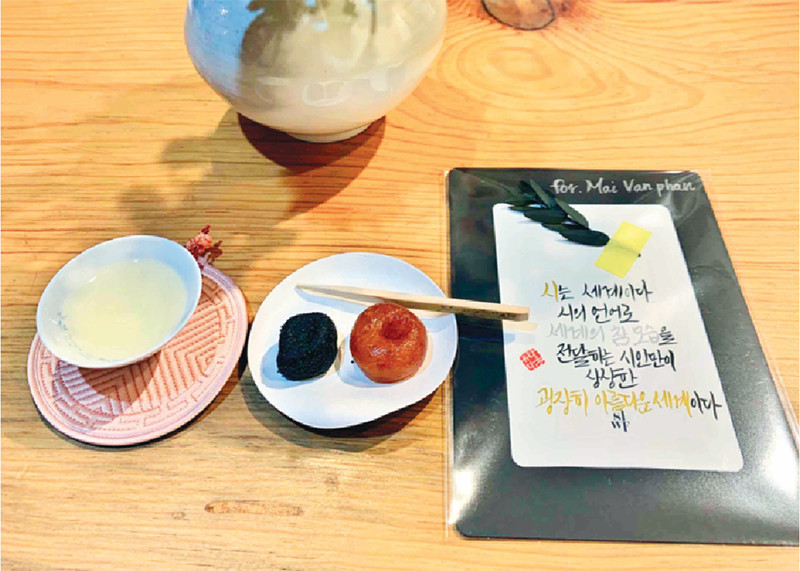 for. Mai Van phan
시는 세계이다
시의 언어로
세계의 참 모습을
전달하는 시인만이
상상한
굉장히 아름다운 세계이다